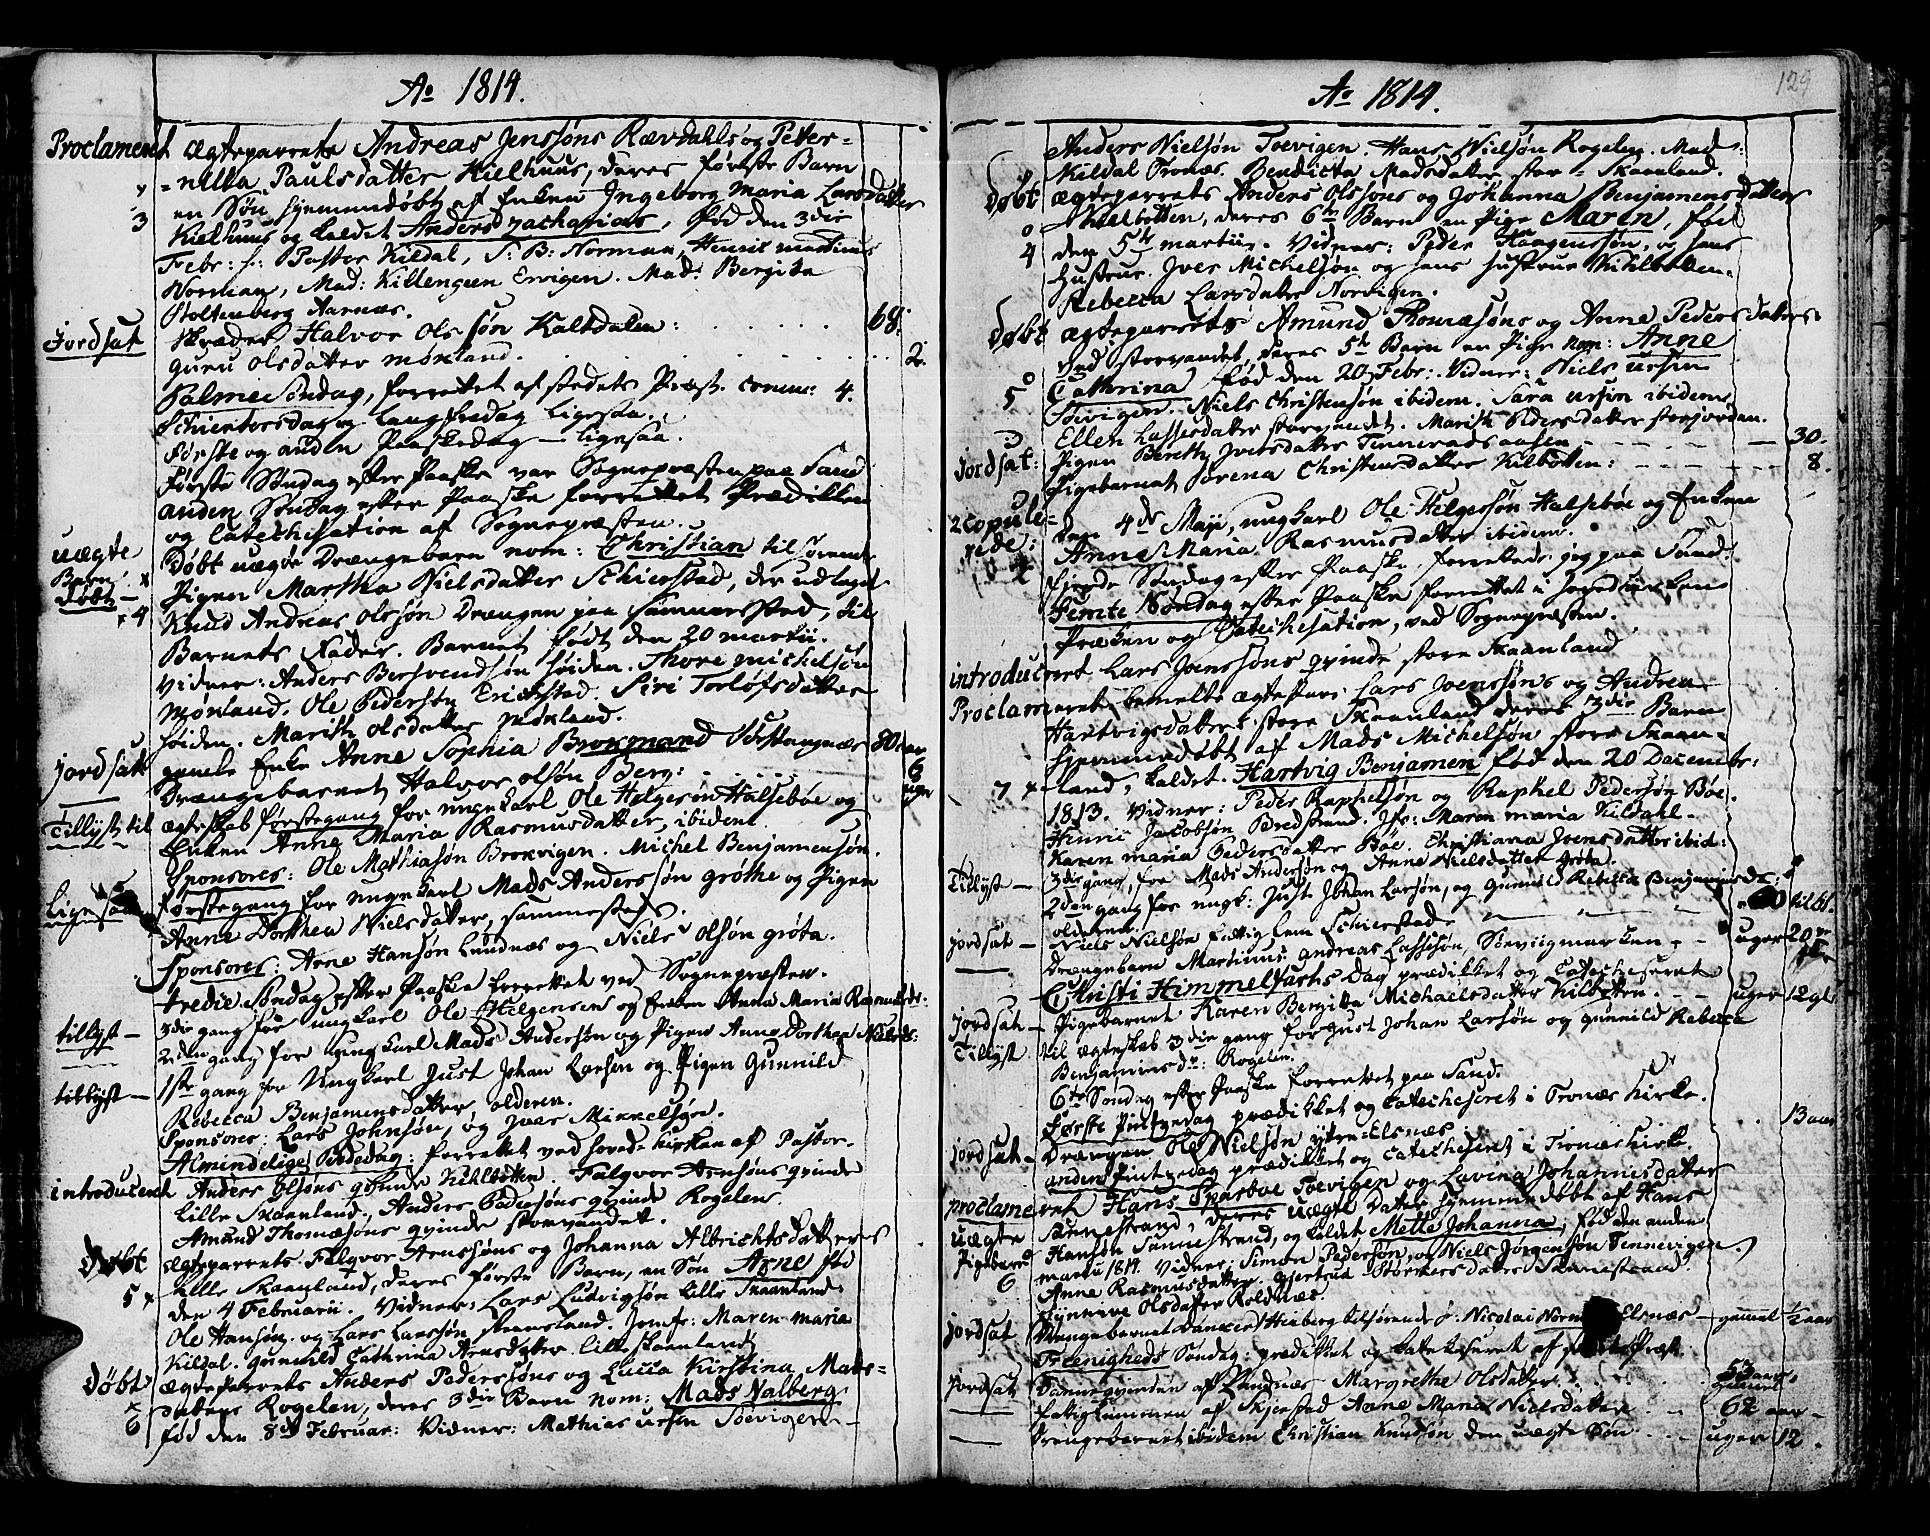 Ao 1814.
Proclameret Ægteparrets Andreas Jenssøns Rævdahls og Peter=
=nilla Paulsdatter Kielhuus, deres første Barn
en Søn hjemmedøbt af Enken Ingeborg Maria Larsdatter
3 Kielhuus og kaldet Anders Zacharias, fød den 3die
Febr: f: Pastor Kildal, S: B: Norman, Henric Martinus
Norman, Mad: Killengreen Ervigen. Mad: Bergita
Stoltenberg Aarnæs.
Jordsat Skræder Halvor Olssøn Kaltdalen: 68.
Guru Olsdatter Møkland. 2.
Palme Søndag, forrettet af stedets Præst. comm: 4.
Schiertorsdag og Langfredag ligesaa.
Første og anden Paaskedag ligesaa.
Første Søndag efter Paaske var Sognepræsten paa Sand
anden Søndag efter Paaske forrettet Prædikken
og Catechisation af Sognepræsten.
uægte Barn døbt Døbt uægte Drængebarn nom: Christian tilhørende
Pigen Martha Nielsdatter Schierstad, der udlagde
4 Knud Andreas Olssøn Drængen paa Sammersted, til
Barnets Fader. Barnet født den 20 Martii.
Vidner: Anders Bersvendsøn Høiden. Thore Michelsøn
Møkland. Ole Pedersøn Erichstad. Siri Torlofsdatter
Høiden. Marith Olsdatter Møkland.
Jordsat gamle Enke Anne Sophia Brokmand Stangnæs 80 aar
Drængebarnet Halvor Olsøn Berg: 6 uger
Tillyst til ægteskab første gang for ungekarl Ole Helgesøn Halsebøe og
Enken Anne Maria Rasmusdatter, ibidem.
Sponsores: Ole Mathiasøn Brokvigen. Michel Benjamensøn.
Ligesaa første gang for ungekarl Mads Anderssøn Grøthe og Pigen
Anne Dorthea Nielsdatter, sammesteds.
Sponsores: Arne Hansøn Lundnæs og Niels Olsøn Grøta.
Tredie Søndag efter Paaske forrettet ved Sognepræsten.
tillyst 3die gang for ungkarl Ole Helgensen og Enken Anna Maria Rasmusds:
2den gang for ungkarl Mads Andersøn og Pigen Anne Dorthea Nielsds:
tillyst 1ste gang for Ungkarl Just Johan Larsen og Pigen Gunnild
Rebecca Benjamensdatter, olderen.
Sponsores: Lars Johnsøn, og Iver Mikkelsøn.
Almindelige Bededag: forrettet ved hoved-kirken af Pastor.
introduceret Anders Olsøns qvinde Kihlbotten. Falqvor Arnsøns qvinde
Lille Skaanland, Anders Pedersøns qvinde Rogelen.
Amund Thomæsøns qvinde Storvandet.
Døbt Ægteparrets Falqvor Arnssøns og Johanna Albrichtsdatters
5 Lille Skaanland, deres første Barn, en Søn Arne fød
den 4 Februarii. Vidner: Lars Ludvigsøn Lille Skaanland
Ole Hansøn og Lars Larssøn Steensland. Jomfr: Maren Maria
Kildal. Gunnild Cathrina Arnsdatter Lille Skaanland
Døbt Ægteparrets Anders Pederssøns og Lucca Kirstina Mads=
datters Rogelen, deres 3die Barn nom: Mads Nalberg
6 fød den 8de Februar: Vidner: Mathias Ursin Toevigen
Ao 1814. 129
Anders Nielsøn Toevigen. Hans Nielsøn Rogelen. Mad:
Kildal Tronæs. Benedicta Madsdatter store Skaanland.
Døbt Ægteparrets Anders Olssøns og Johanna Benjamensdatters
Kielbotten, deres 6te Barn en Pige Maren, fød
4 den 5te Martii. Vidner: Peder Haagenssøn, og hans
Hustrue. Iver Michelsøn og hans Hustrue Kihlbotten.
Rebecca Larsdatter Norvigen.
Døbt Ægteparrets Amund Thomæsøns og Anne Pedersdatters
ved Storvandet, deres 5te Barn en Pige nom: Anne
5 Cathrina, fød den 20 Febr: Vidner: Niels Ursin
Toevigen. Niels Christensøn ibidem. Sara Ursin ibidem.
Ellen Lassesdatter Storvandet. Marith Pedersdatter Storjordan.
Jordsat: Pigen Bereth Iversdatter Tennevadsaasen 30.
Pigebarnet Sørena Christensdatter Kilbotten: 8.
2 copule=rede: den 4de Maji, ungkarl Ole Helgessøn Halsebøe og Enken
Anne Maria Rasmusdatter ibidem.
Fierde Søndag efter Paaske, forrettede jeg paa Sand.
Femte Søndag efter Paaske forrettet i Hovedkirken
Præken og Catechisation, ved Sognepræsten.
introduceret Lars Joenssøns qvinde store Skaanland
Proclameret, bemelte ægtepars Lars Joenssøns og Andrea
Hartvigsdatters store Skaanland deres 3die Barn
hjemmedøbt af Mads Michelsøn store Skaan=
7 land, kaldet. Hartvig Benjamen fød den 20 Decembr:
1813. Vidner: Peder Raphelsøn og Raphel Pedersøn Bøe.
Henric Jacobsøn Bredstrand. Jfr: Maren Maria Kildahl.
Karen Maria Pedersdatter Bøe. Christiana Joensdatter ibid:
Tillyst 3die gang, for Mads Andersøn og Anne Nielsdatter Grøta.
2den gang for ungk: Just Johan Larsøn, og Gunnild Rebecca Benjamensdr
olderen.
jordsat Niels Nielsøn Fattiglem Schierstad 60 til 61.
Drængebarn Martinus Andreas Lassesøn Toevigmarken uger 20
Christi Himmelfarts Dag prædikket og Catecheseret
jordsat Pigebarnet Karen Bergitta Michaelsdatter Kilbotten. uger 12 gl
Tillyst til ægteskab 3die gang for Just Johan Larsøn og Gunnild Rebecca
Benjaminsdr: Rogelen.
6te Søndag efter Paaske forrettet paa Sand.
Første Pintzedag prædikket og Catecheseret i Tronæs Kirke.
jordsat Drængen Ole Nielsøn ytre-Elsnæs 13 aar
anden Pintzedag prædikket og Catecheseret i Tronæs Kirke.
proclameret Hans Sparboe Toevigen og Lavina Johannesdatter
uægte Sannestrand, deres uægte Datter hjemmedøbt af Hans
Pigebarn Hansøn Sannestrand, og kaldet Mette Johanna, fød den anden
6 Martii 1814. Vidner: Simon Pedersøn, og Niels Jørgensøn Tennevigen.
Anne Rasmusdatter. Gjertrud Størkersdatter Sannestrand.
Synneve Olsdatter Roldnæs.
Jordsat Drengebarnet Dancert Hieberg tilhørende Hr: Nicolai Norm Elsnæs gammel ½ aar
Treenigheds Søndag: prædikket og Catekiseret af Præst.
jordsat Dannegvinden af Sandnæs Margrethe Olsdatter 53 aar gammel
Fatiglemmen af Skjerstad Anne Maria Nielsdatter 62 aar
Drengebarnet ibidem Christian Knudsøn den uægte Søn uger 12.